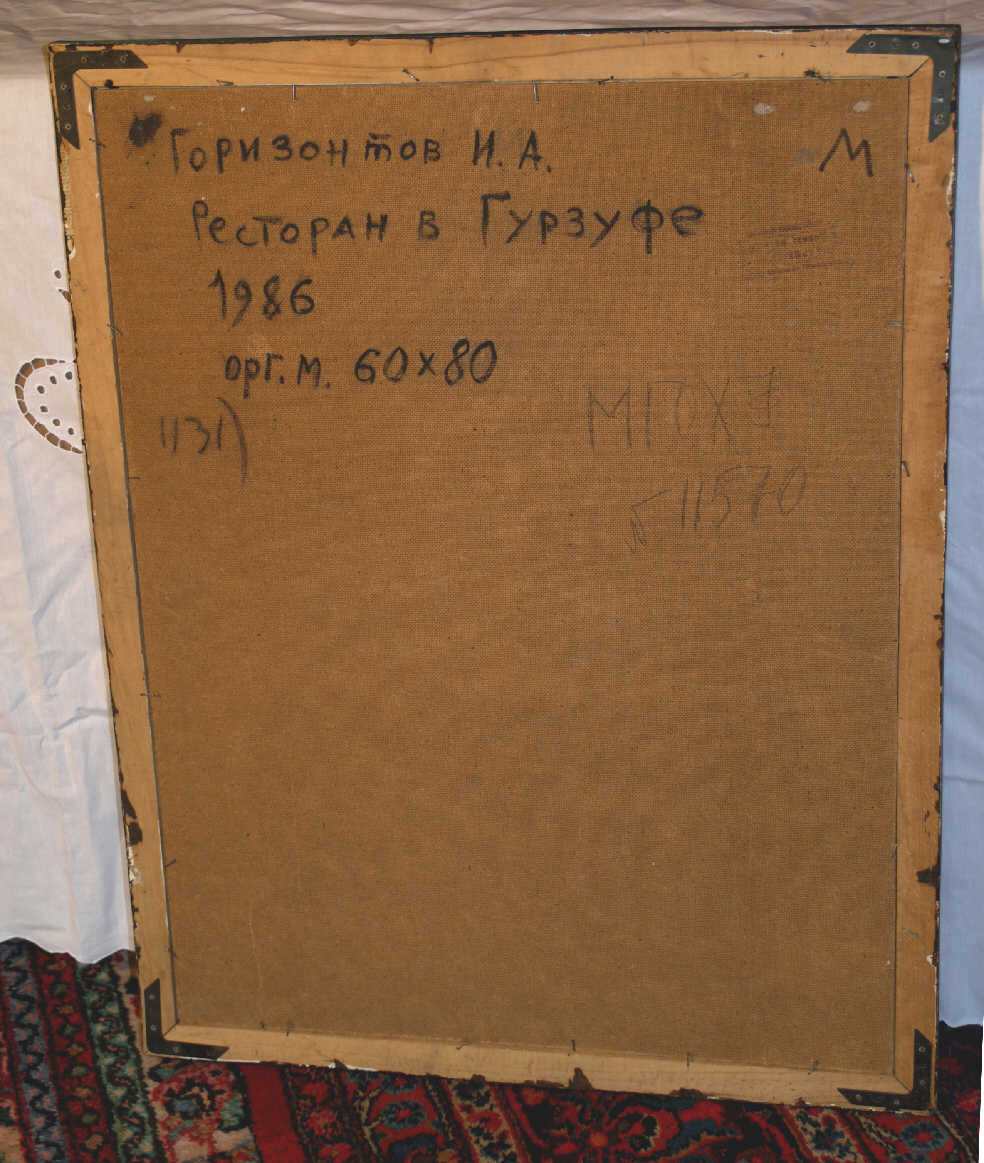 Горизонтов И. А.
М
Ресторан в Гурзуфе
1986
орг. м. 60x80
1131)
МГОХУ
№ 11570